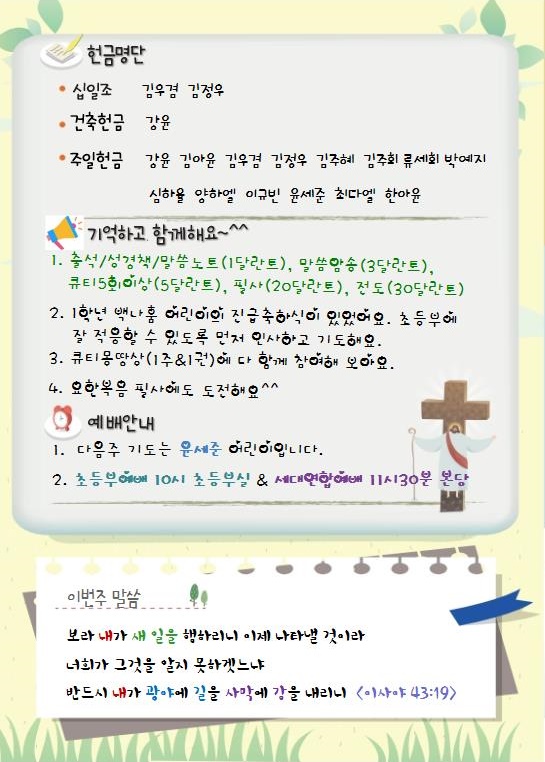 헌금명단
십일조 김우겸 김정우
건축헌금 강윤
주일헌금 강윤 김아윤 김우겸 김정우 김주혜 김주회 류세희 박예지
심하율 양하엘 이규빈 윤세준 최다엘 한아윤
기억하고 함께해요~^^
1. 출석/성경책/말씀노트(1달란트), 말씀암송(3달란트),
큐티5회이상(5달란트), 필사(20달란트), 전도(30달란트)
2. 1학년 백나홈 어린이의 진급축하식이 있었어요. 초등부에
잘 적응할 수 있도록 먼저 인사하고 기도해요.
3. 큐티몽땅상(1주&1권)에 다 함께 참여해 보아요.
4. 요한복음 필사에도 도전해요^^
예배안내
1. 다음주 기도는 윤세준 어린이입니다.
2. 초등부예배 10시 초등부실 & 세대연합예배 11시30분 본당
이번주 말씀
보라 내가 새 일을 행하리니 이제 나타낼 것이라
너희가 그것을 알지 못하겠느냐
반드시 내가 광야에 길을 사막에 강을 내리니 <이사야 43:19>